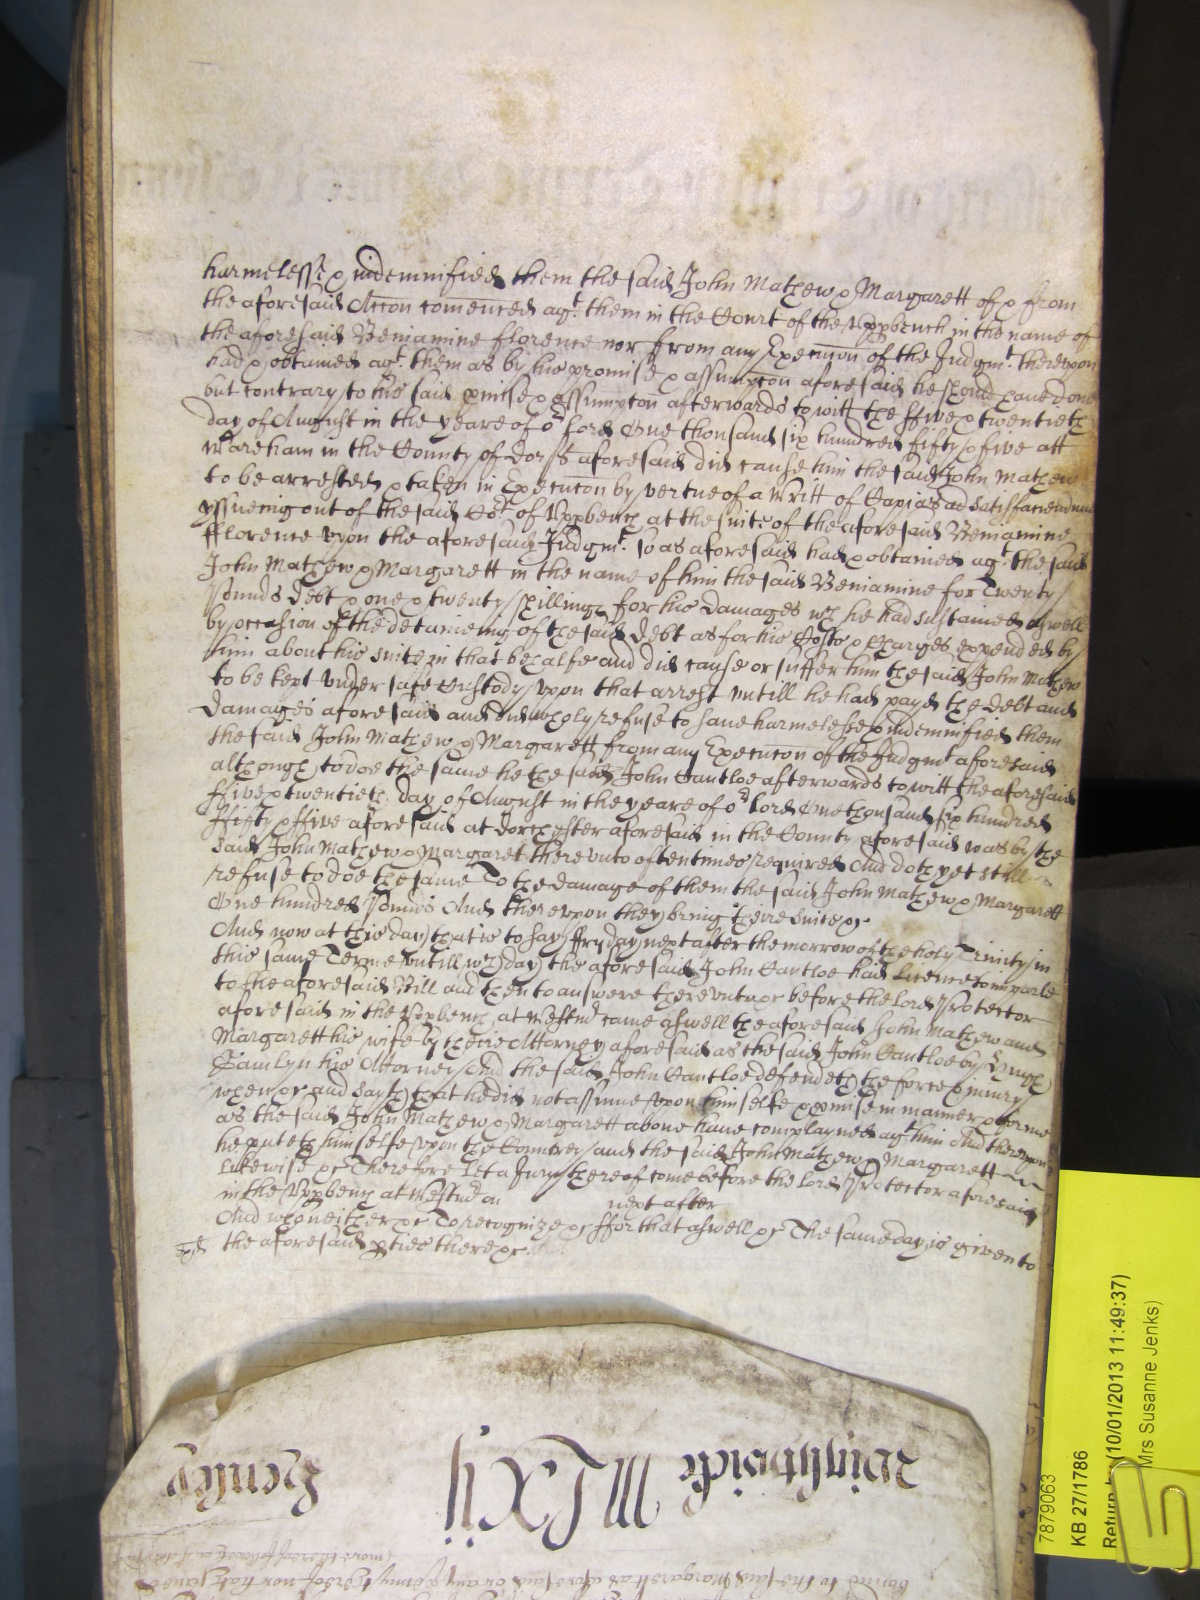 harmelesse & indemnified them the said John Mathew & Margarett of & from
the aforesaid Accon comenced agt. them in the Court of the Vppbench in the name of
the aforesaid Beniamine fflorence nor from any Execucon of the Judgmt. therevpon
had & obtained agt. them as by his promise & assumpcon aforesaid he shoud haue done
but contrary to his said pmise & assumpcon afterwards to witt the ffive & twentieth
day of August in the yeare of or Lord One thousand six hundred fifty & five att
Wareham in the County of Dorss aforesaid did cause him the said John Mathew
to be arrested & taken in Execucon by vertue of a Writt of Capias ad satisfaciendum
yssueing out of the said Cort of Vppbench at the suite of the aforesaid Beniamine
fflorence vpon the aforesaid Judgmt. so as aforesaid had & obtained agt. the said
John Mathew & Margarett in the name of him the said Beniamine for Twenty
Pounds debt & one & twenty shillings for his damages wch he had sustained aswell
by occasion of the deteineing of the said debt as for his Costs & Charges expended by
him about his suite in that behalfe and did cause or suffer him the said John Mathew
to be kept vnder safe Custody vpon that arrest vntill he had payd the debt and
damages aforesaid and did wholy refuse to saue harmelesse & indemnified them
the said John Mathew & Margarett from any Execucon of the Judgmt aforesaid
although to doe the same he the said John Cantloe afterwards to witt the aforesaid
ffive & twentieth day of August in the yeare of or lord One thousand six hundred
ffifty & ffive aforesaid at Dorchester aforesaid in the County aforesaid was by the
said John Mathew & Margaret therevnto oftentimes required And doth yet still
refuse to doe the same To the damage of them the said John Mathew & Margarett
One hundred Pounds And therevpon they bring theire suite &c
And now at this day that is to say ffryday next after the morrow of the holy Trinity in
this same Terme vntill wch day the aforesaid John Cantloe had licence to imparle
to the aforesaid Bill and then to answere therevnto &c before the Lord Protector
aforesaid in the Vppbench at Westmr came aswell the aforesaid John Mathew and
Margarett his wife by theire Attorney aforesaid as the said John Cantloe by Hugh
Hamlyn his Attorney And the said John Cantloe defendeth the force & iniury
when &c and saith that he did not assume vpon himselfe & promise in manner & forme
as the said John Mathew & Margarett aboue haue complayned agt him And therevpon
he putteth himselfe vpon the Countrey and the said John Mathew & Margarett
likewise &c Therefore let a Jury thereof come before the lord Protector aforesaid
in the Vppbench at Westmr on next after
And who neither &c To recognize &c ffor that aswell &c The same day is given to
the aforesaid pties there &c
Wightwick MCXij Henley
7879063
KB 27/1786
(10/01/2013 11:49:37)
Mrs Susanne Jenks)